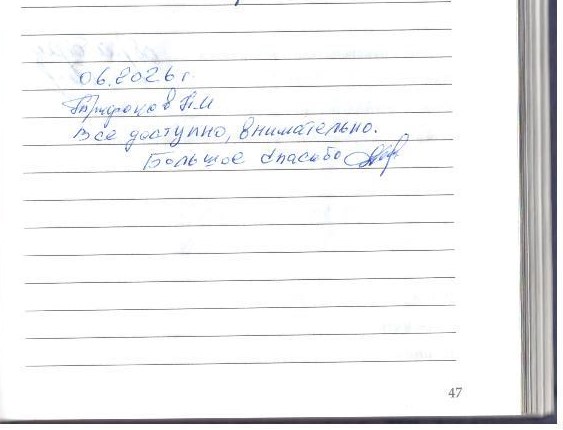 06.2026 г.
Все доступно, внимательно.
Большое спасибо
47